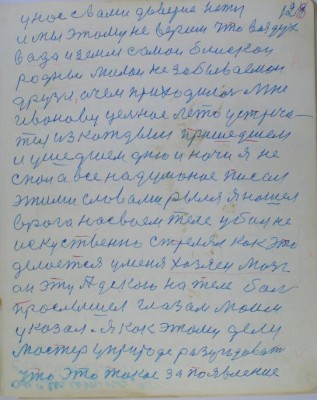 128
у нас с вами доверие нету
и мы этому не верим что воздух
вода и земля самой близкой
родны милой не забываемой
друзья, а чем приходилось мне
Иванову целное лето устреча-
ться из каждым пришедшем
и ушедшем дню и ночи я не
спал а все надуманое писал
этими словами рылся я нашел
врага на своем теле убил не
искуственно стрелял как это
делается у меня хозяен мозг
он эту Ядскую на теле боль
промыслил глазам моим
указал. Я как этому делу
мастер у природе разгадывать
что это такое за появление